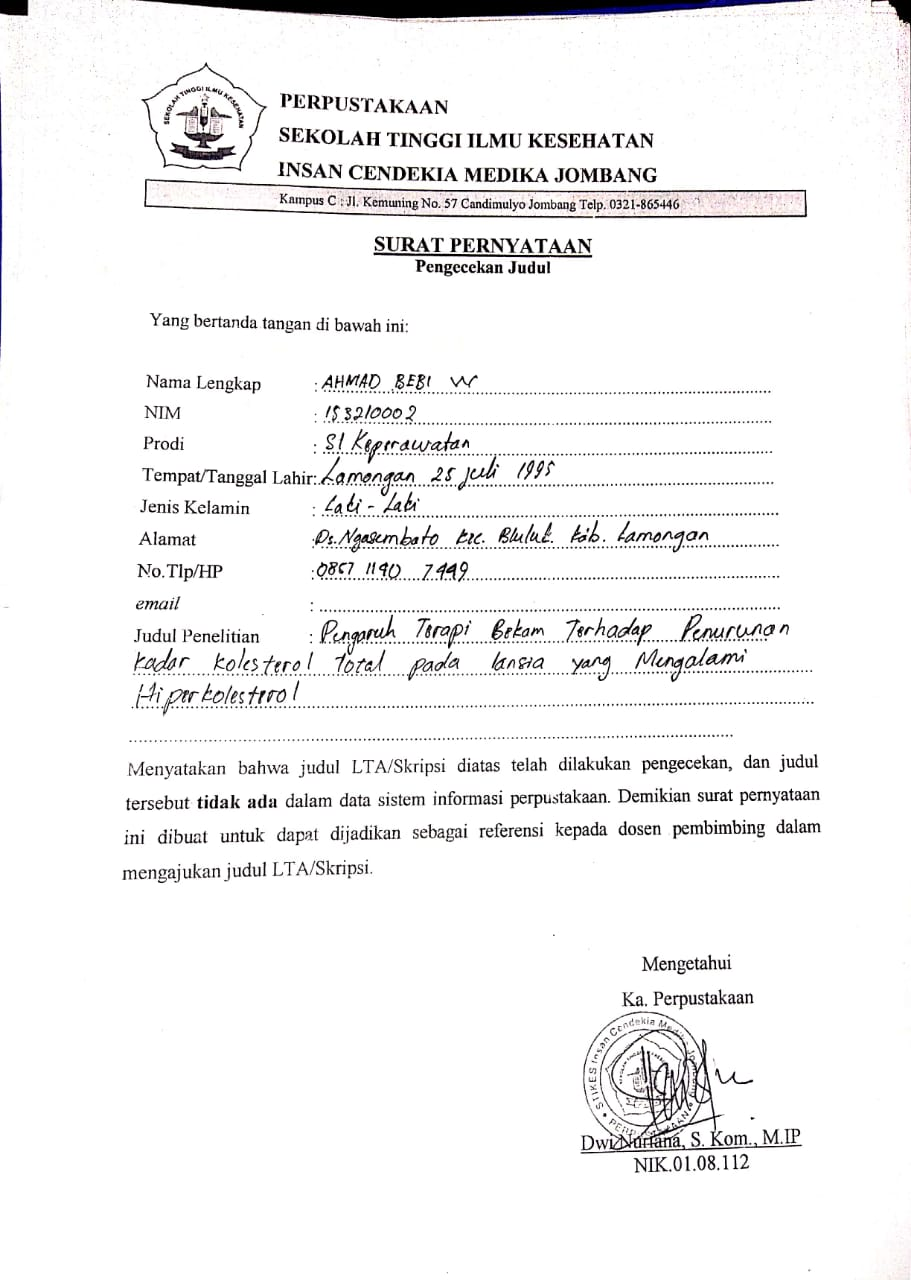 SEKOLAH TINGGI ILMU KESEHATAN
PERPUSTAKAAN
SEKOLAH TINGGI ILMU KESEHATAN
INSAN CENDEKIA MEDIKA JOMBANG
Kampus C : Jl. Kemuning No. 57 Candimulyo Jombang Telp. 0321-865446
SURAT PERNYATAAN
Pengecekan Judul
Yang bertanda tangan di bawah ini:
Nama Lengkap : AHMAD BEBI W
NIM : 153210002
Prodi : S1 Keperawatan
Tempat/Tanggal Lahir: Lamongan 25 juli 1995
Jenis Kelamin : Laki - Laki
Alamat : Ds. Ngasembato kec. Bluluk. kab. Lamongan
No.Tlp/HP : 0857 1190 7449
email :
Judul Penelitian : Pengaruh Terapi Bekam Terhadap Penurunan
kadar kolesterol Total pada lansia yang Mengalami
Hiperkolesterol
Menyatakan bahwa judul LTA/Skripsi diatas telah dilakukan pengecekan, dan judul
tersebut tidak ada dalam data sistem informasi perpustakaan. Demikian surat pernyataan
ini dibuat untuk dapat dijadikan sebagai referensi kepada dosen pembimbing dalam
mengajukan judul LTA/Skripsi.
Mengetahui
Ka. Perpustakaan
STIKES Insan Cendekia Medika Jombang
PERPUSTAKAAN
Dwi Nuriana, S. Kom., M.IP
NIK.01.08.112